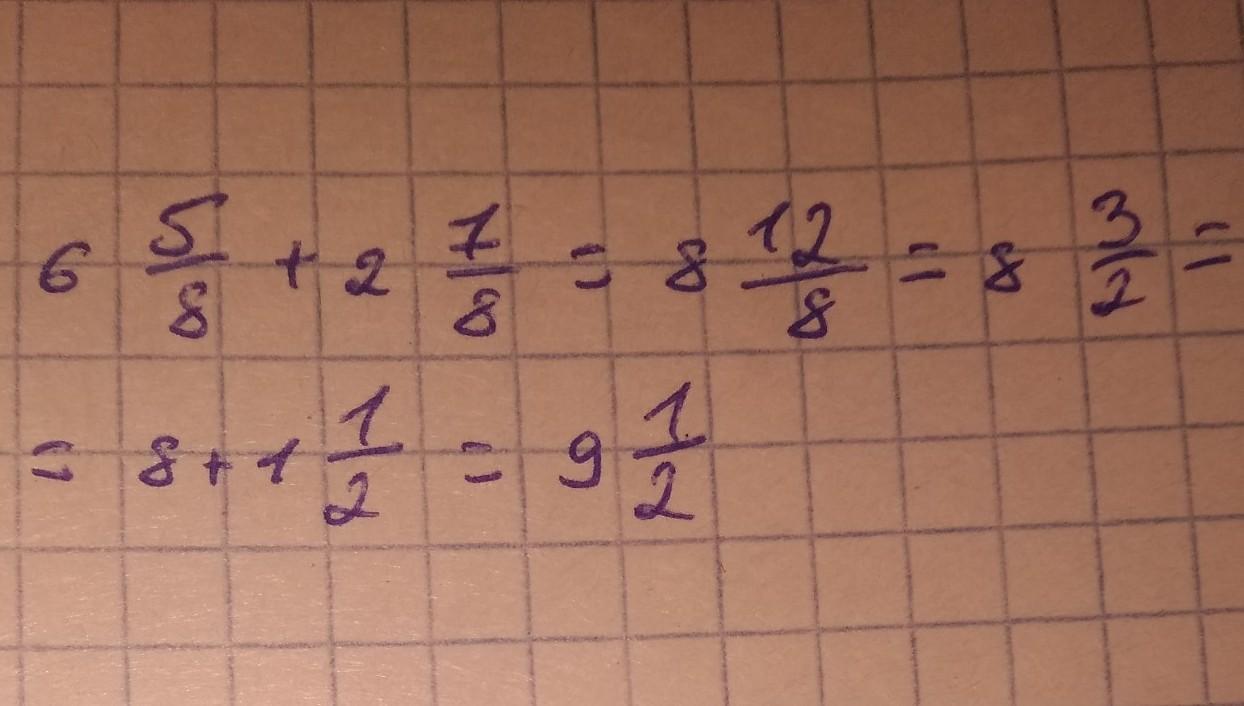 6 5/8 + 2 7/8 = 8 12/8 = 8 3/2 =
= 8 + 1 1/2 = 9 1/2